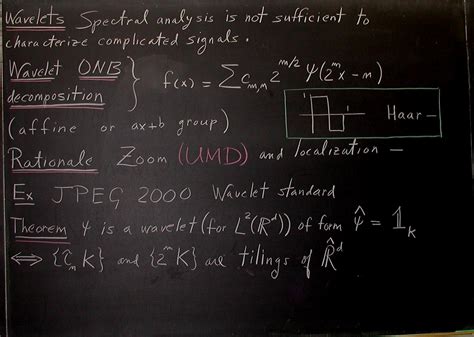 Wavelets Spectral analysis is not sufficient to
characterize complicated signals.
Wavelet ONB
decomposition } f(x) = ∑ c_{m,n} 2^{m/2} ψ(2^m x - n)
1
1
Haar –
(affine or ax+b group)
Rationale Zoom (UMD) and localization –
Ex JPEG 2000 Wavelet standard
Theorem ψ is a wavelet (for L²(ℝ^d)) of form ψ̂ = 𝟙_K
⟺ {τ_n K} and {2^m K} are tilings of ℝ̂^d